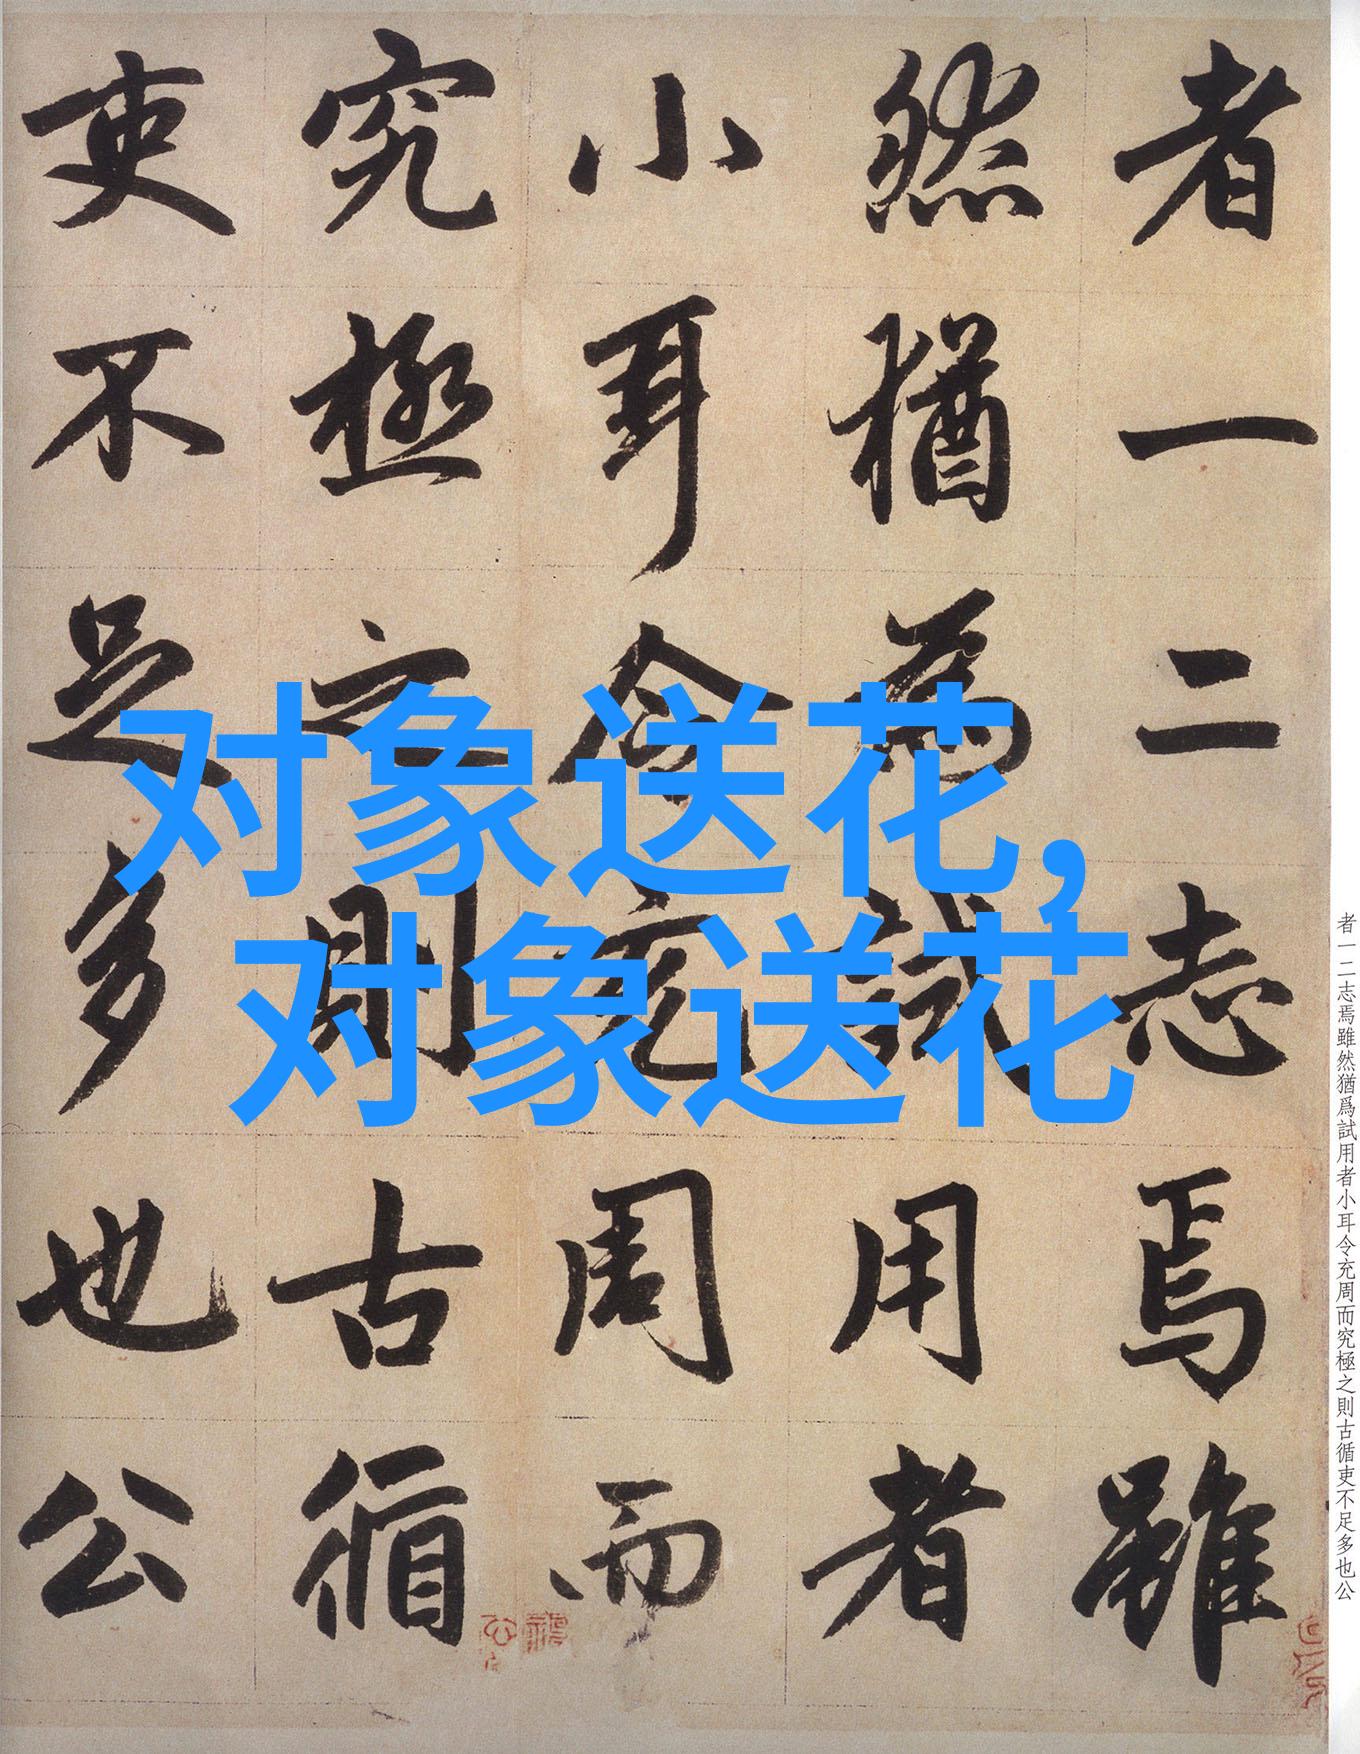 者一二志焉雖
然猶為試用者
小耳令充周而
究極之則古循
吏不足多也公
对象送花,
对象送花
者一二志焉雖然猶爲試用者小耳令充周而究極之則古循吏不足多也公